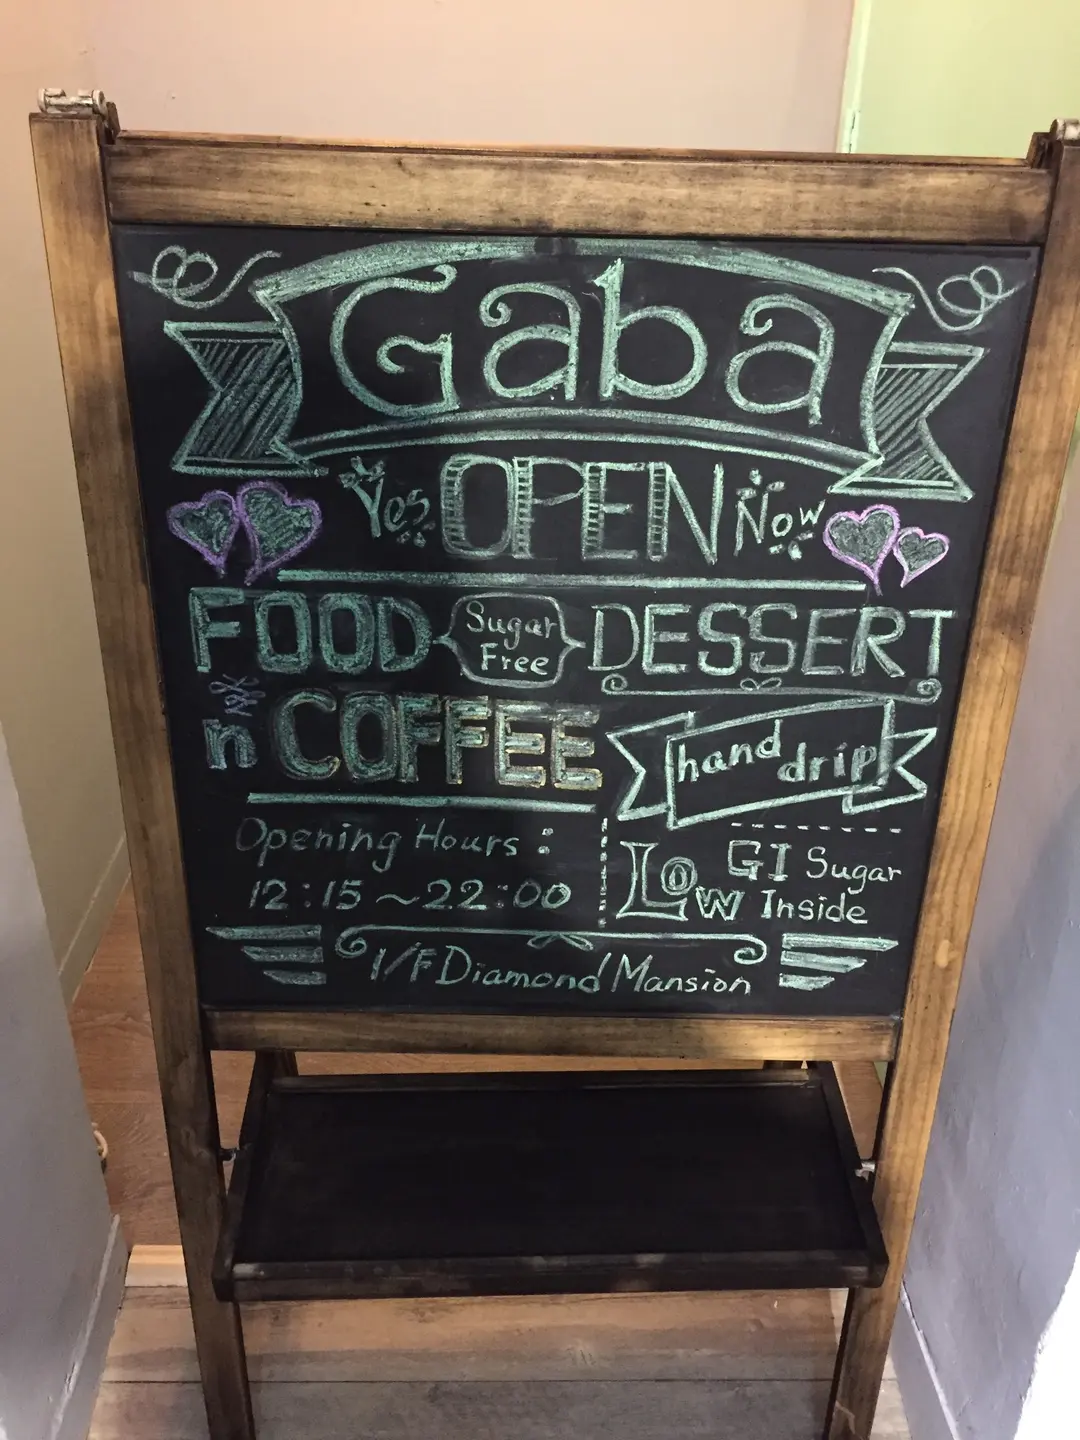 Gaba
Yes OPEN Now
FOOD Sugar Free DESSERT
n COFFEE hand drip
Opening Hours :
12:15 ~ 22:00
Low GI Sugar Inside
1/F Diamond Mansion